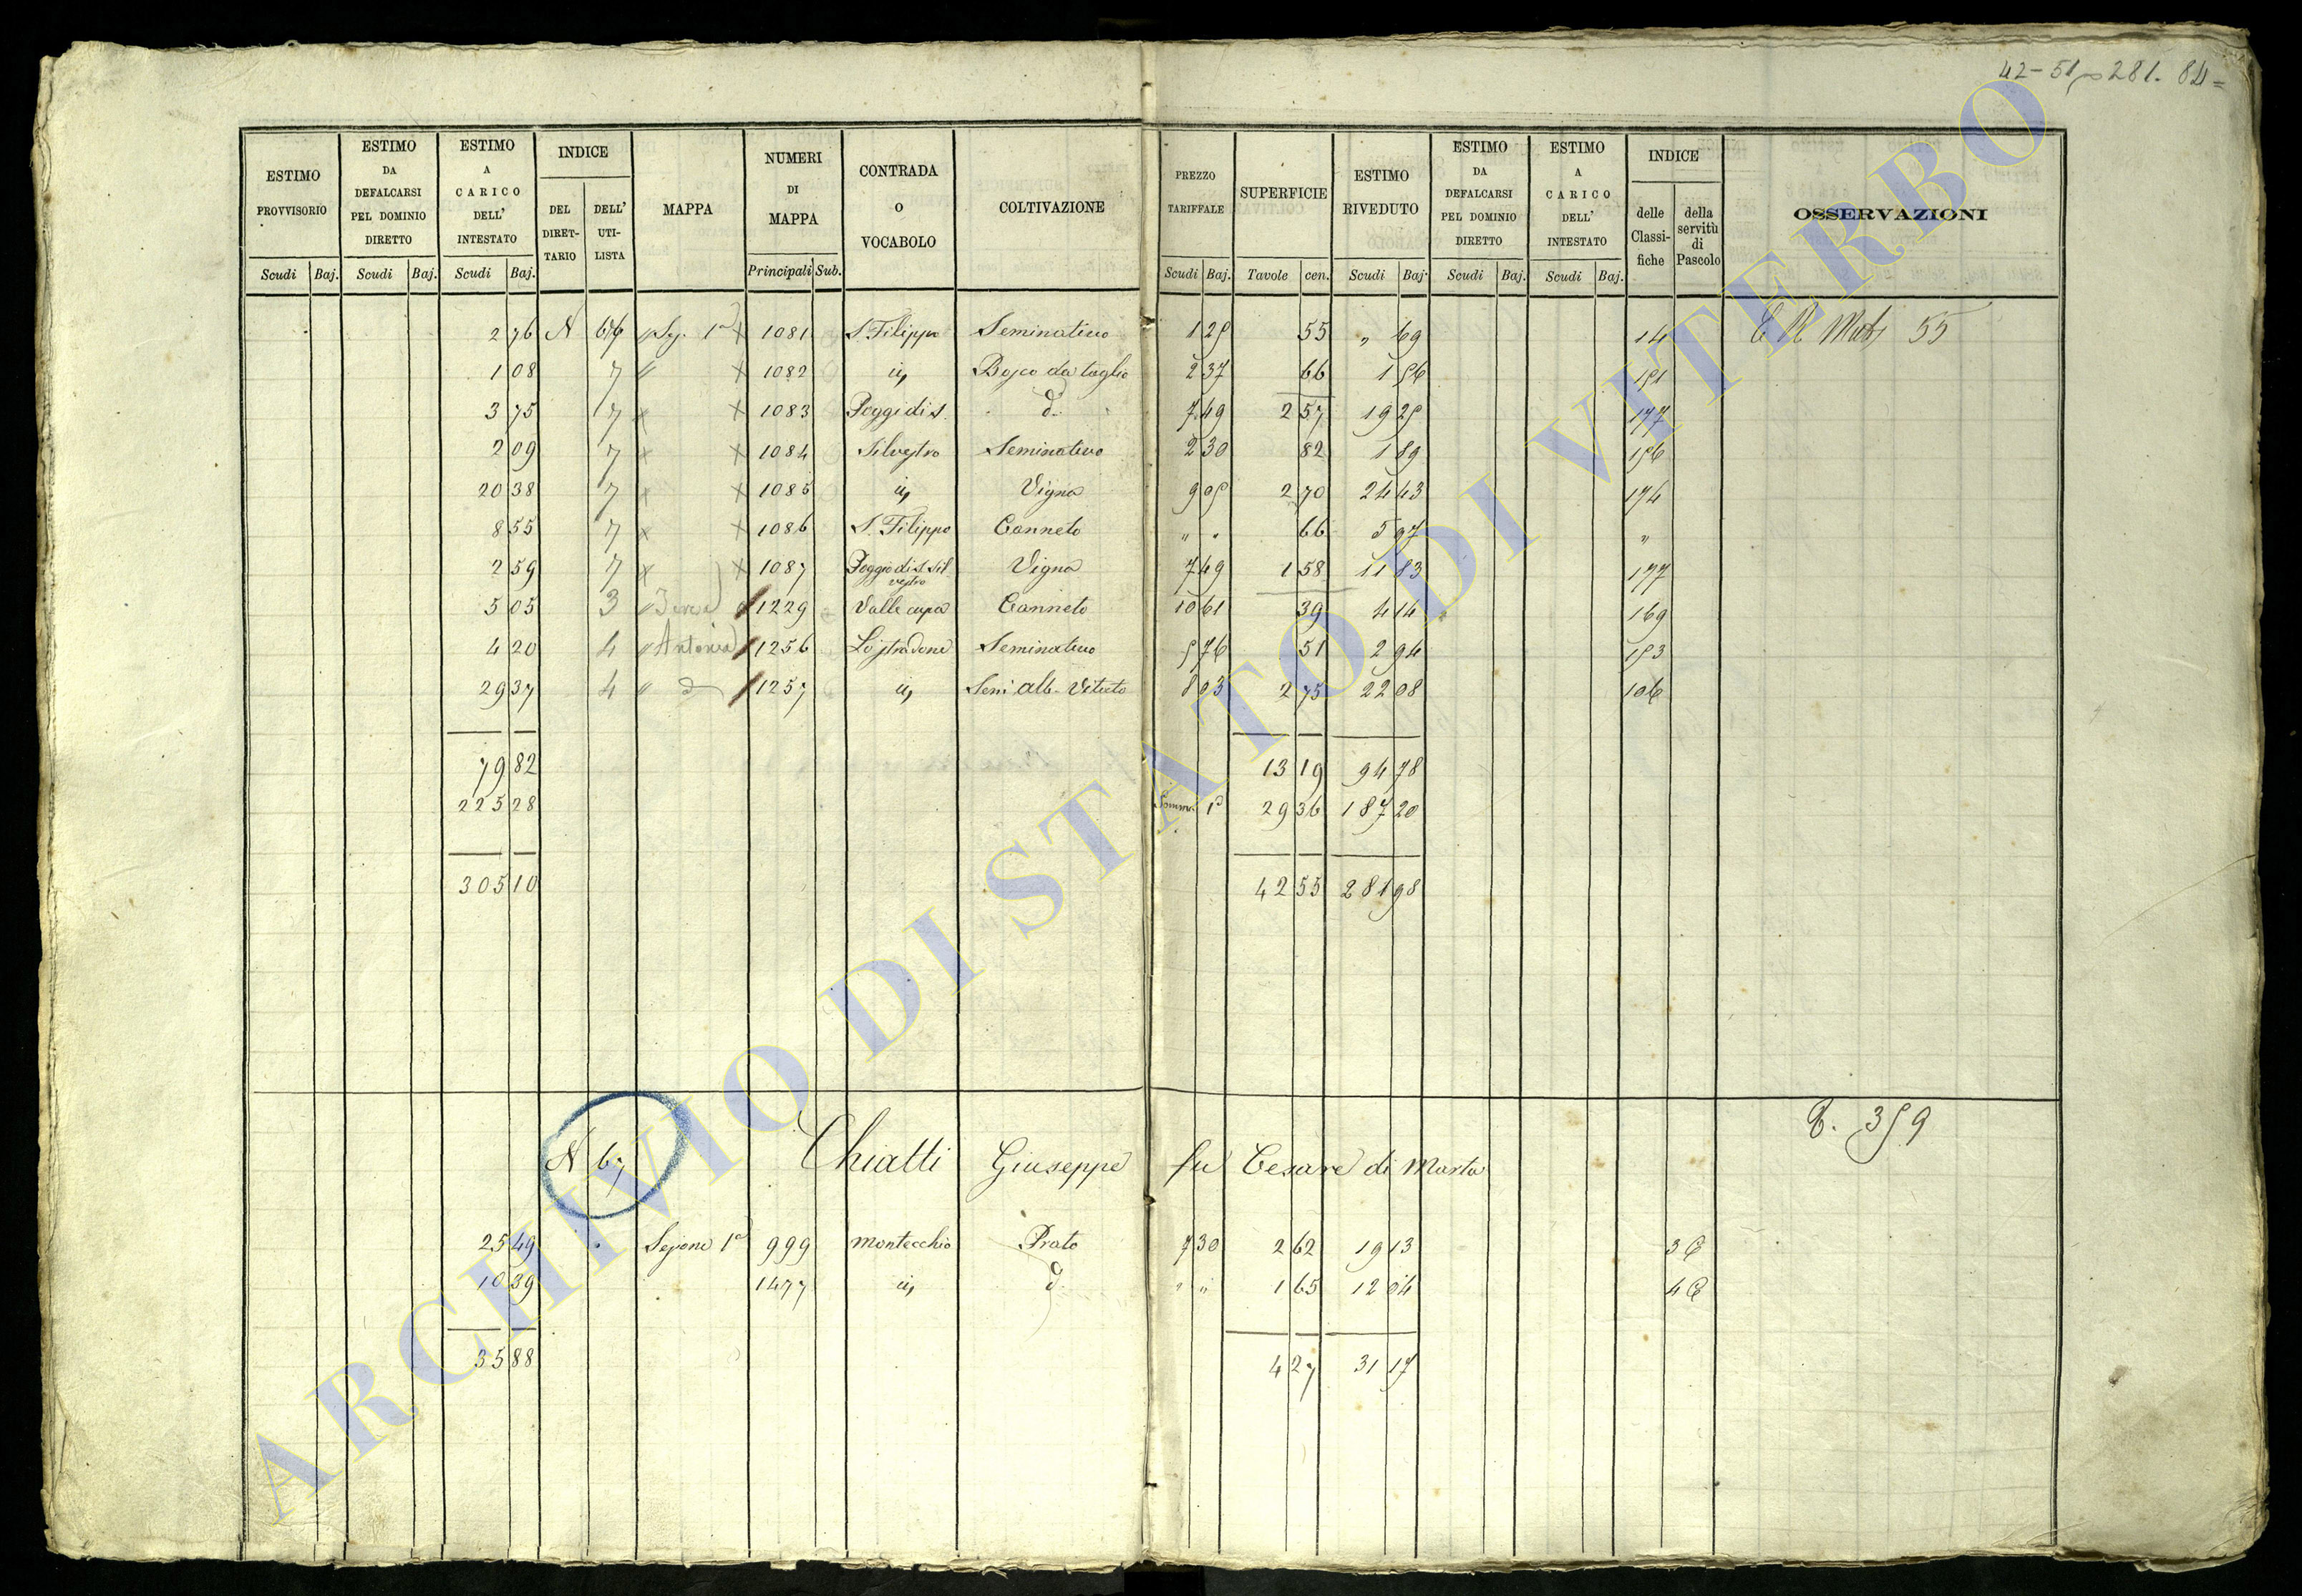 42-51 281. 84=
ESTIMO PROVVISORIO | ESTIMO DA DEFALCARSI PEL DOMINIO DIRETTO | ESTIMO A CARICO DELL' INTESTATO | INDICE | MAPPA | NUMERI DI MAPPA | CONTRADA O VOCABOLO | COLTIVAZIONE | PREZZO TARIFFALE | SUPERFICIE | ESTIMO RIVEDUTO | ESTIMO DA DEFALCARSI PEL DOMINIO DIRETTO | ESTIMO A CARICO DELL' INTESTATO | INDICE | OSSERVAZIONI
DEL DIRET-TARIO | DELL' UTI-LISTA | delle Classi-fiche | della servitù di Pascolo
Scudi | Baj. | Scudi | Baj. | Scudi | Baj. | Principali | Sub. | Scudi | Baj. | Tavole | cen. | Scudi | Baj. | Scudi | Baj. | Scudi | Baj.
2 76 N 66 Sez. 1a x 1081 S. Filippo Seminativo 1 25 55 " 69 14 55
1 08 7 " x 1082 id Bosco da taglio 2 37 66 1 56 151
3 75 7 x x 1083 Poggi di S. d. 7 49 2 57 19 25 177
2 09 7 x x 1084 Silvestro Seminativo 2 30 82 1 89 156
20 38 7 x x 1085 id Vigna 9 05 2 70 24 43 174
8 55 7 x x 1086 S. Filippo Canneto " " 66 5 97 "
2 59 7 x x 1087 Poggio di S. Silvestro Vigna 7 49 1 58 11 83 177
5 05 3 " 1229 Valle cupa Canneto 10 61 39 4 14 169
4 20 4 " Antonia 1256 Lo stradone Seminativo 5 76 51 2 94 153
29 37 4 " d 1257 id Sem. alb. Vitato 8 03 2 75 22 08 106
79 82 13 19 94 78
225 28 Somma 1a 29 36 187 20
305 10 42 55 281 98
N 67 Chiatti Giuseppe fu Cesare di Marta 359
25 49 Sezione 1a 999 Montecchio Prato 7 30 2 62 19 13 3
10 39 1477 id d. " " 1 65 12 04 4
35 88 4 27 31 17
ARCHIVIO DI STATO DI VITERBO